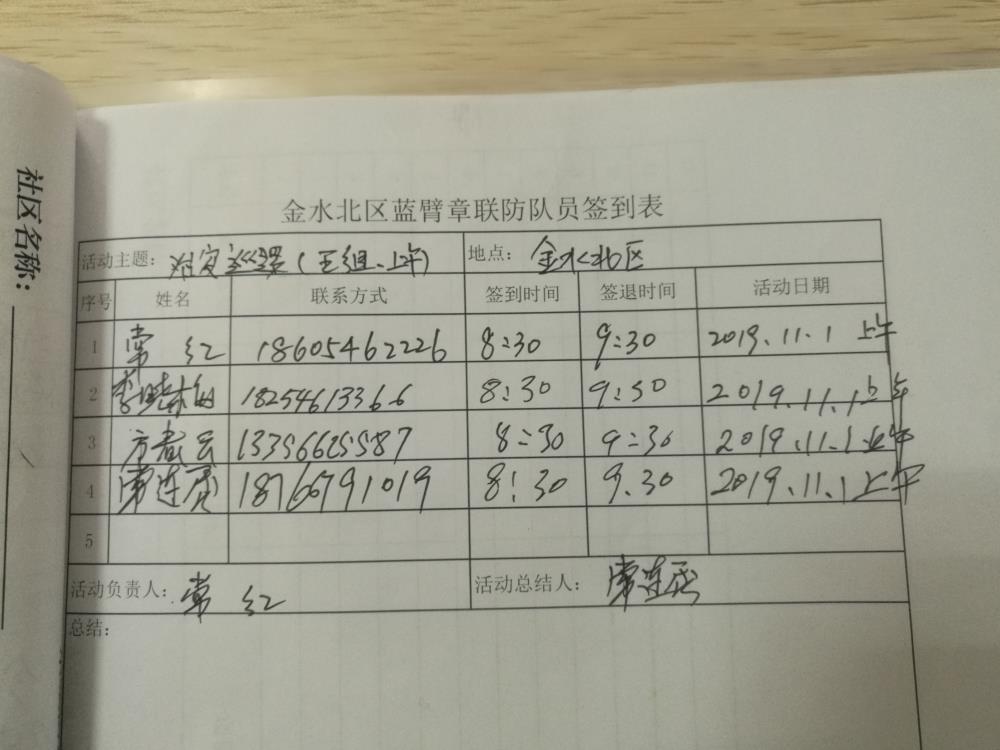 社区名称:
金水北区蓝臂章联防队员签到表
活动主题: 治安巡逻(五组、上午) 地点: 金水北区
序号 姓名 联系方式 签到时间 签退时间 活动日期
1 常红 18605462226 8:30 9:30 2019.11.1 上午
2 李晓 18254613366 8:30 9:30 2019.11.1 上午
3 方 云 13356625587 8:30 9:30 2019.11.1 上午
4 常连 18766791019 8:30 9.30 2019.11.1 上午
5
活动负责人: 常红 活动总结人: 常连
总结: